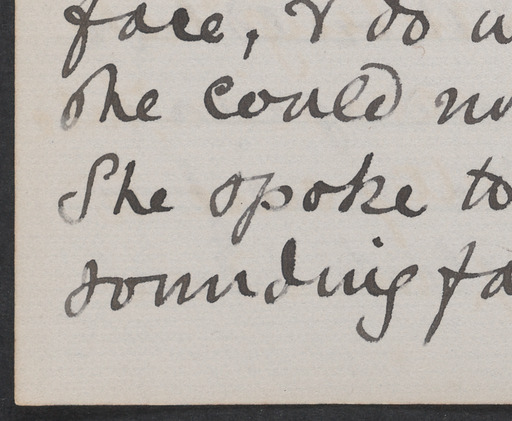 face, & do
she could
She spoke to
sounding